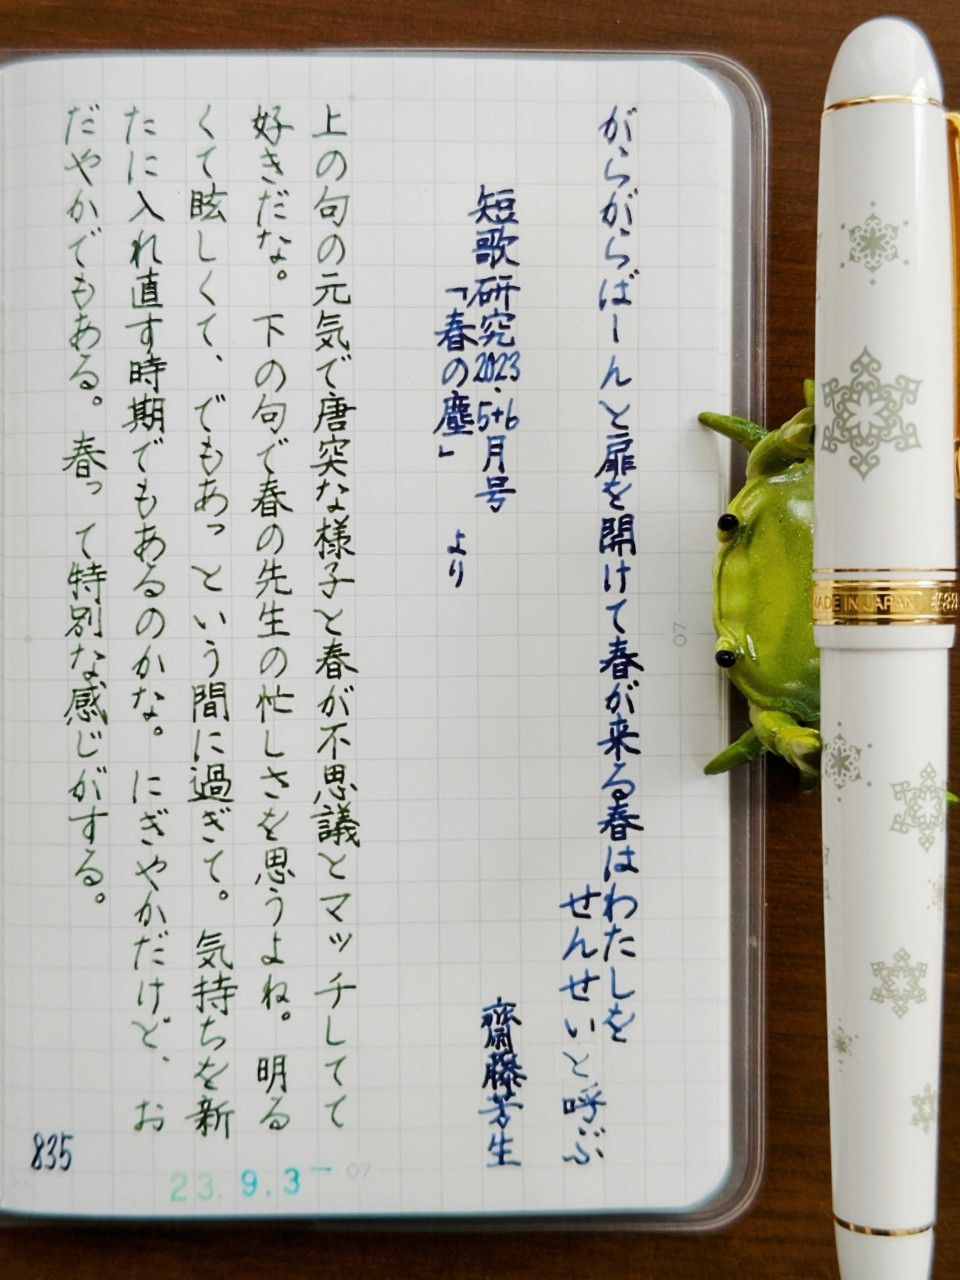 がらがらばーんと扉を開けて春が来る春はわたしを
せんせいと呼ぶ
短歌研究2023.5+6月号
「春の塵」 より
齋藤芳生
上の句の元気で唐突な様子と春が不思議とマッチしてて
好きだな。下の句で春の先生の忙しさを思うよね。明る
くて眩しくて、でもあっという間に過ぎて。気持ちを新
たに入れ直す時期でもあるのかな。にぎやかだけど、お
だやかでもある。春って特別な感じがする。
835
23.9.3
07
07
MADE IN JAPAN